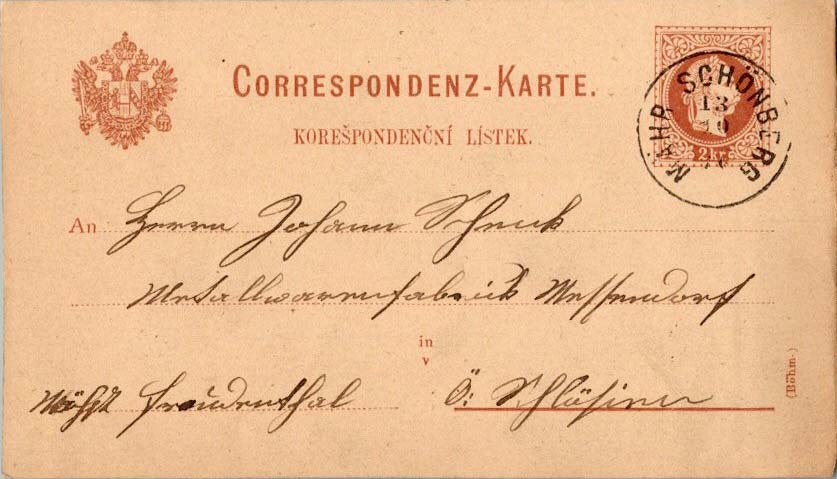 CORRESPONDENZ-KARTE.
KOREŠPONDENČNÍ LÍSTEK.
2 kr
MÄHR SCHÖNBERG
13
10
An Herrn Johann Schenk
Metallwarenfabrick Messendorf
in
v
Nächst Freudenthal Ö: Schläsien
(Böhm.)